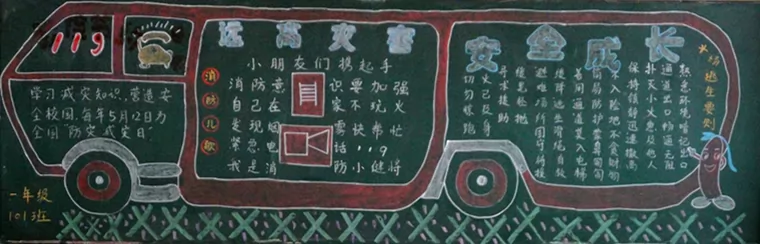 119
学习减灾知识,营造安
全校园,每年5月12日为
全国"防灾减灾日".
一年级
101班
远离灾害
消防儿歌
小朋友们携起手
消防意识要加强
自己在家不玩火
发现烟雾快帮忙
紧急电话119
我是消防小健将
安全成长
火场逃生要则
熟悉环境暗记出口
通道出口畅通无阻
扑灭小火惠及他人
保持镇静迅速撤离
不入险地不贪财物
简易防护蒙鼻匍匐
善用通道莫入电梯
缓降逃生滑绳自救
避难场所固守待援
缓晃轻抛
寻求援助
火已及身
切勿惊跑